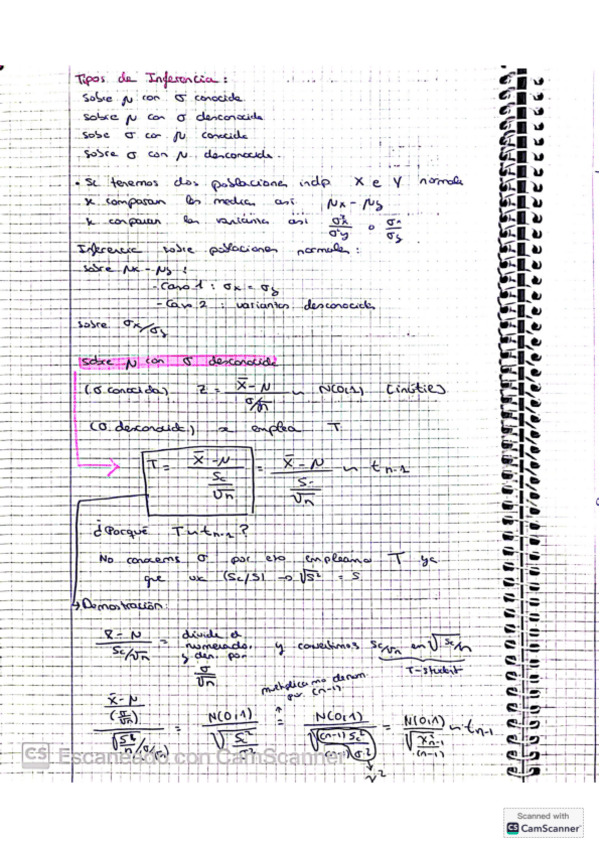 Tipos de Inferencia:
sobre μ con σ conocida
sobre μ con σ desconocida
sobre σ con μ conocida
sobre σ con μ desconocida.
• Si tenemos dos poblaciones indp X e Y normales
se comparan las medias así μx - μy
se comparan las varianzas así σ²x/σ²y o σx/σy
Inferencia sobre poblaciones normales:
sobre μx - μy:
- Caso 1: σx = σy
- Caso 2: varianzas desconocidas
sobre σx/σy
sobre μ con σ desconocida
(σ conocida) Z = (X̄ - μ)/(σ/√n) ~ N(0,1)
(σ desconocida) se emplea T
T = (X̄ - μ)/(Sc/√n) = (X̄ - μ)/(S/√n) ~ t n-1
¿Porqué T ~ t n-1?
No conocemos σ por eso empleamos T ya
que (Sc/S) → √S² = S
→ Demostración:
(X̄ - μ)/(Sc/√n) = divide el numerador y den. por σ/√n y convertimos Sc/√n en
T-student
multiplicamos denom. por (n-1)
= N(0,1) = N(0,1) = N(0,1) ~ t n-1
CS Escaneado con CamScanner
Scanned with
CS CamScanner